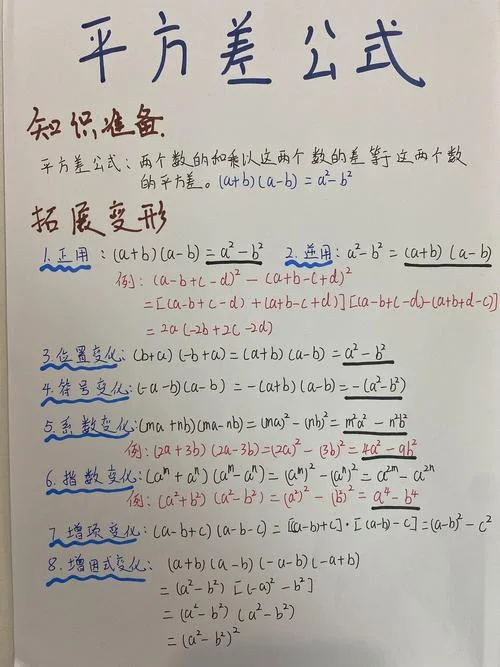 平方差公式
知识准备.
平方差公式:两个数的和乘以这两个数的差等于这两个数
的平方差。(a+b)(a-b)=a²-b²
拓展变形
1.正用:(a+b)(a-b)=a²-b² 2.逆用:a²-b²=(a+b)(a-b)
例:(a-b+c-d)²-(a+b-c+d)²
=[(a-b+c-d)+(a+b-c+d)][(a-b+c-d)-(a+b+d-c)]
=2a(-2b+2c-2d)
3.位置变化:(b+a)(-b+a)=(a+b)(a-b)=a²-b²
4.符号变化:(-a-b)(a-b)=-(a+b)(a-b)=-(a²-b²)
5.系数变化:(ma+nb)(ma-nb)=(ma)²-(nb)²=m²a²-n²b²
例:(2a+3b)(2a-3b)=(2a)²-(3b)²=4a²-9b²
6.指数变化:(aᵐ+aⁿ)(aᵐ-aⁿ)=(aᵐ)²-(aⁿ)²=a²ᵐ-a²ⁿ
例:(a²+b²)(a²-b²)=(a²)²-(b²)²=a⁴-b⁴
7.增项变化:(a-b+c)(a-b-c)=[(a-b)+c]·[(a-b)-c]=(a-b)²-c²
8.增因式变化:(a+b)(a-b)(-a-b)(-a+b)
=(a²-b²)[(-a)²-b²]
=(a²-b²)(a²-b²)
=(a²-b²)²